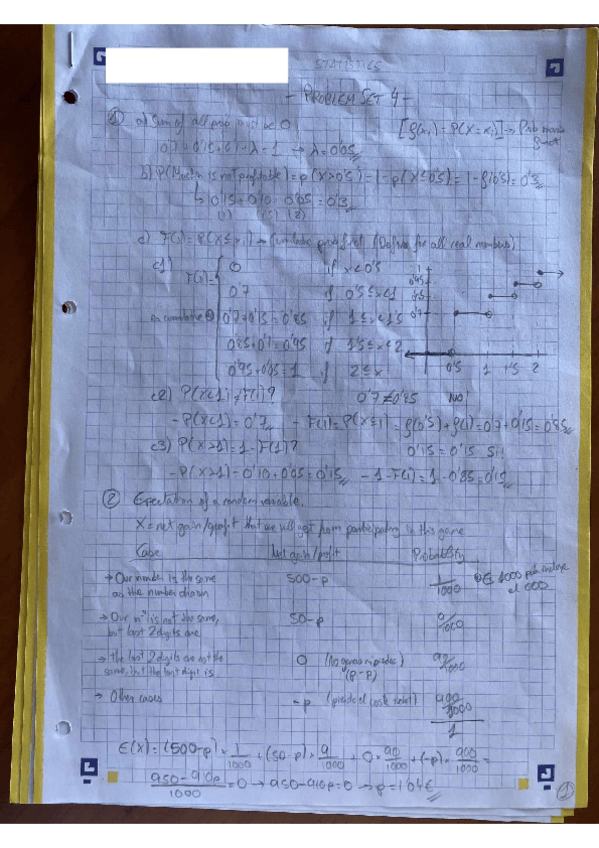 STATISTICS
- PROBLEM SET 4 -
① a) Sum of all prob must be 0 [f(xi) = P(X = xi)] → Prob mass funct
0'7 + 0'15 + 0'1 + λ = 1 → λ = 0'05
b) P(Machin is not profitable) = P(X>0'5) = 1 - P(X≤0'5) = 1 - f(0'5) = 0'3
↳ 0'15 + 0'10 + 0'05 = 0'3
(1) (1'5) (2)
c) F(x) = P(X≤xi) → Cumulative prob funct. (Defined for all real numbers)
c1) F(x) = 0 if x<0'5
0'7 if 0'5≤x<1
0'7+0'15=0'85 if 1≤x<1'5
0'85+0'1=0'95 if 1'5≤x<2
0'95+0'05=1 if 2≤x
1
0'95
0'85
0'7
0'5 1 1'5 2
c2) P(X<1) ≠ F(1)? 0'7 ≠ 0'85 NO!
- P(X<1) = 0'7 - F(1) = P(X≤1) = f(0'5) + f(1) = 0'7 + 0'15 = 0'85
c3) P(X>1) = 1 - F(1)? 0'15 = 0'15 Si!
- P(X>1) = 0'10 + 0'05 = 0'15 - 1 - F(1) = 1 - 0'85 = 0'15
② Expectation of a random variable.
X = net gain/profit that we will get from participating in this game
Case Net gain/profit Probability
→ Our number is the same as the number drawn 500-p 1/1000
→ Our nº is not the same, but last 2 digits are 50-p 9/1000
→ The last 2 digits are not the same, but the last digit is 0 (No ganas ni pierdes) (p-p) 90/1000
→ Other cases -p (pierde el coste ticket) 900/1000
1
E(X) = (500-p) × 1/1000 + (50-p) × 9/1000 + 0 × 90/1000 + (-p) × 900/1000 =
950-910p/1000 = 0 → 950-910p = 0 → p = 1'04€
①